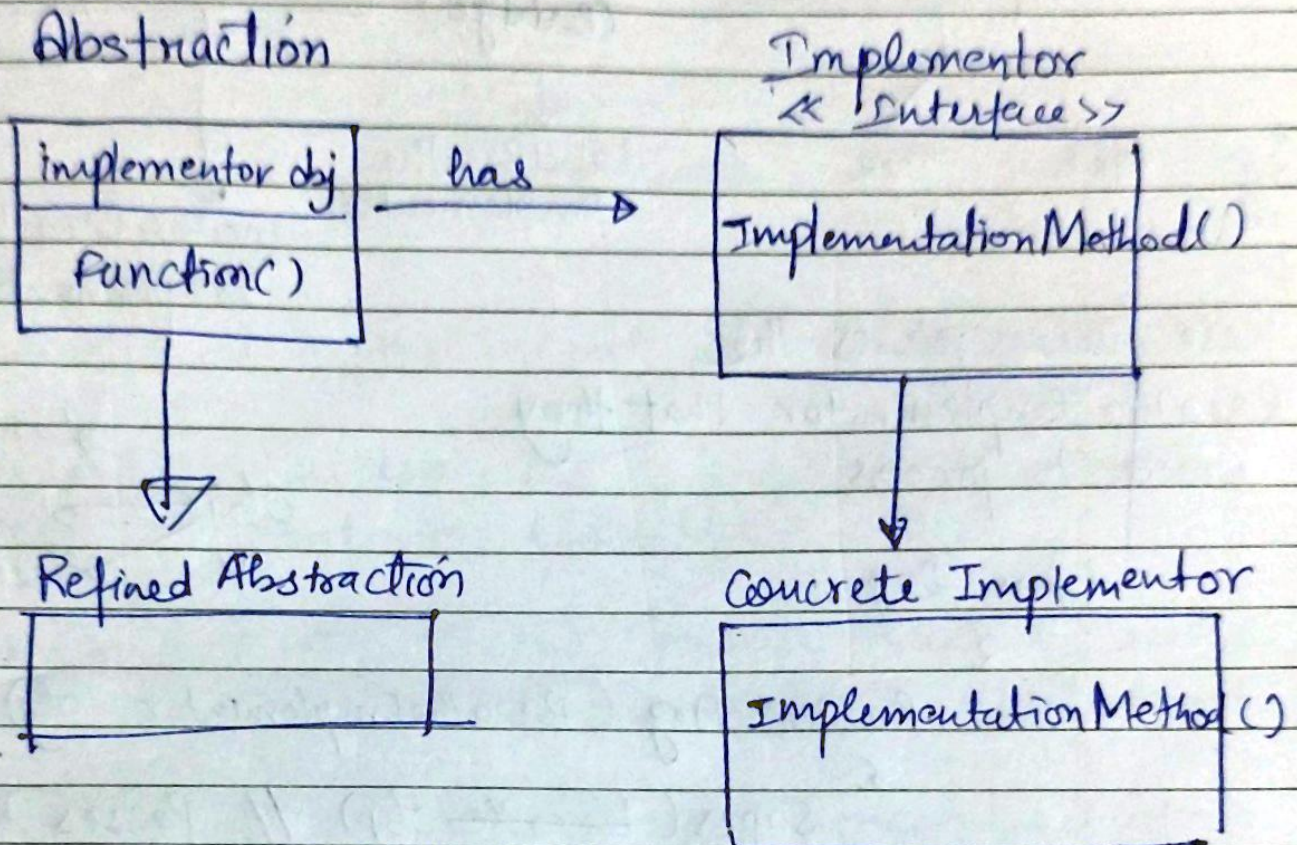 Abstraction
implementor obj
Function()
has
Implementor
<< Interface >>
Implementation Method()
Refined Abstraction
Concrete Implementor
Implementation Method()